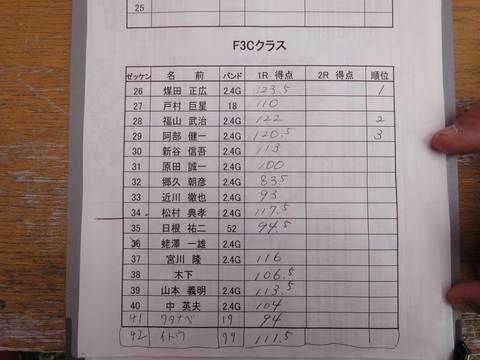 25
F3Cクラス
ゼッケン 名 前 バンド 1R 得点 2R 得点 順位
26 煤田 正広 2.4G 123.5 1
27 戸村 巨星 18 110
28 福山 武治 2.4G 122 2
29 阿部 健一 2.4G 120.5 3
30 新谷 信吾 2.4G 113
31 原田 誠一 2.4G 100
32 郷久 朝彦 2.4G 83.5
33 近川 徹也 2.4G 93
34 松村 典孝 2.4G 117.5
35 日根 祐二 52 94.5
36 蛯澤 一雄 2.4G
37 宮川 隆 2.4G 116
38 木下 106.5
39 山本 義明 2.4G 113.5
40 中 英夫 2.4G 104
41 ワタナベ 19 94
42 イトウ 79 111.5